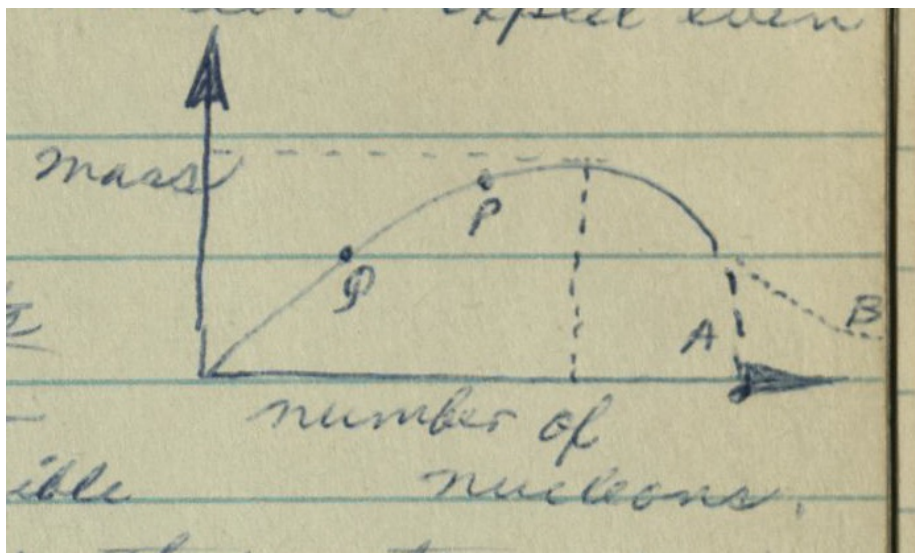 expect even
mass
P
B
A
number of
nucleons.
ible